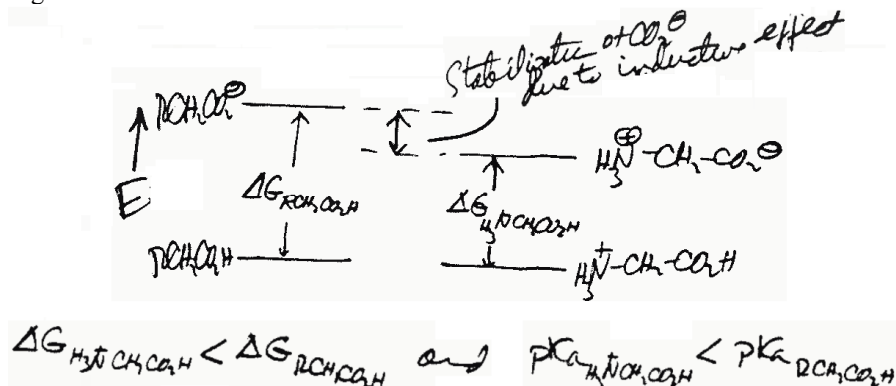 Stabilization of CO₂⊖
due to inductive effect
RCH₂CO₂⊖
H₃N⊕-CH₂-CO₂⊖
E
ΔG RCH₂CO₂H
ΔG H₃N⁺CH₂CO₂H
RCH₂CO₂H
H₃N⁺-CH₂-CO₂H
ΔG H₃N⁺CH₂CO₂H < ΔG RCH₂CO₂H and pKa H₃N⁺CH₂CO₂H < pKa RCH₂CO₂H